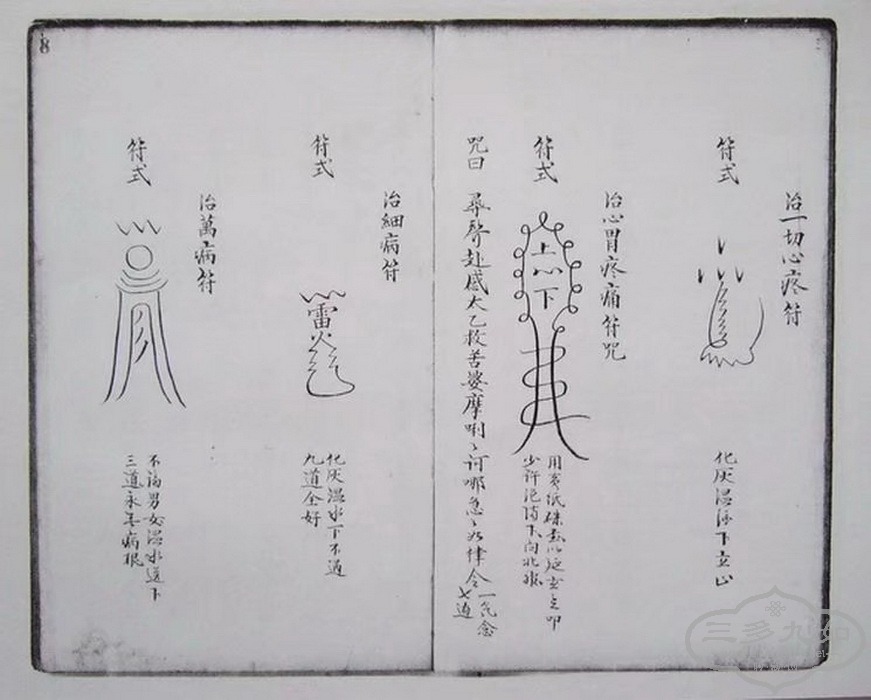 治一切心疼符
符式
化灰温 下立止
治心胃疼痛符咒
符式
上心下
用黄紙硃
少許 向北
咒曰 尋聲赴感太乙救苦婆摩唎唎訶哪急急如律令 一氣念
七道
治細病符
符式
雷火
化灰温水下不過
九道全好
治萬病符
符式
不論男女温水送下
三道永 病根
8
三多九如